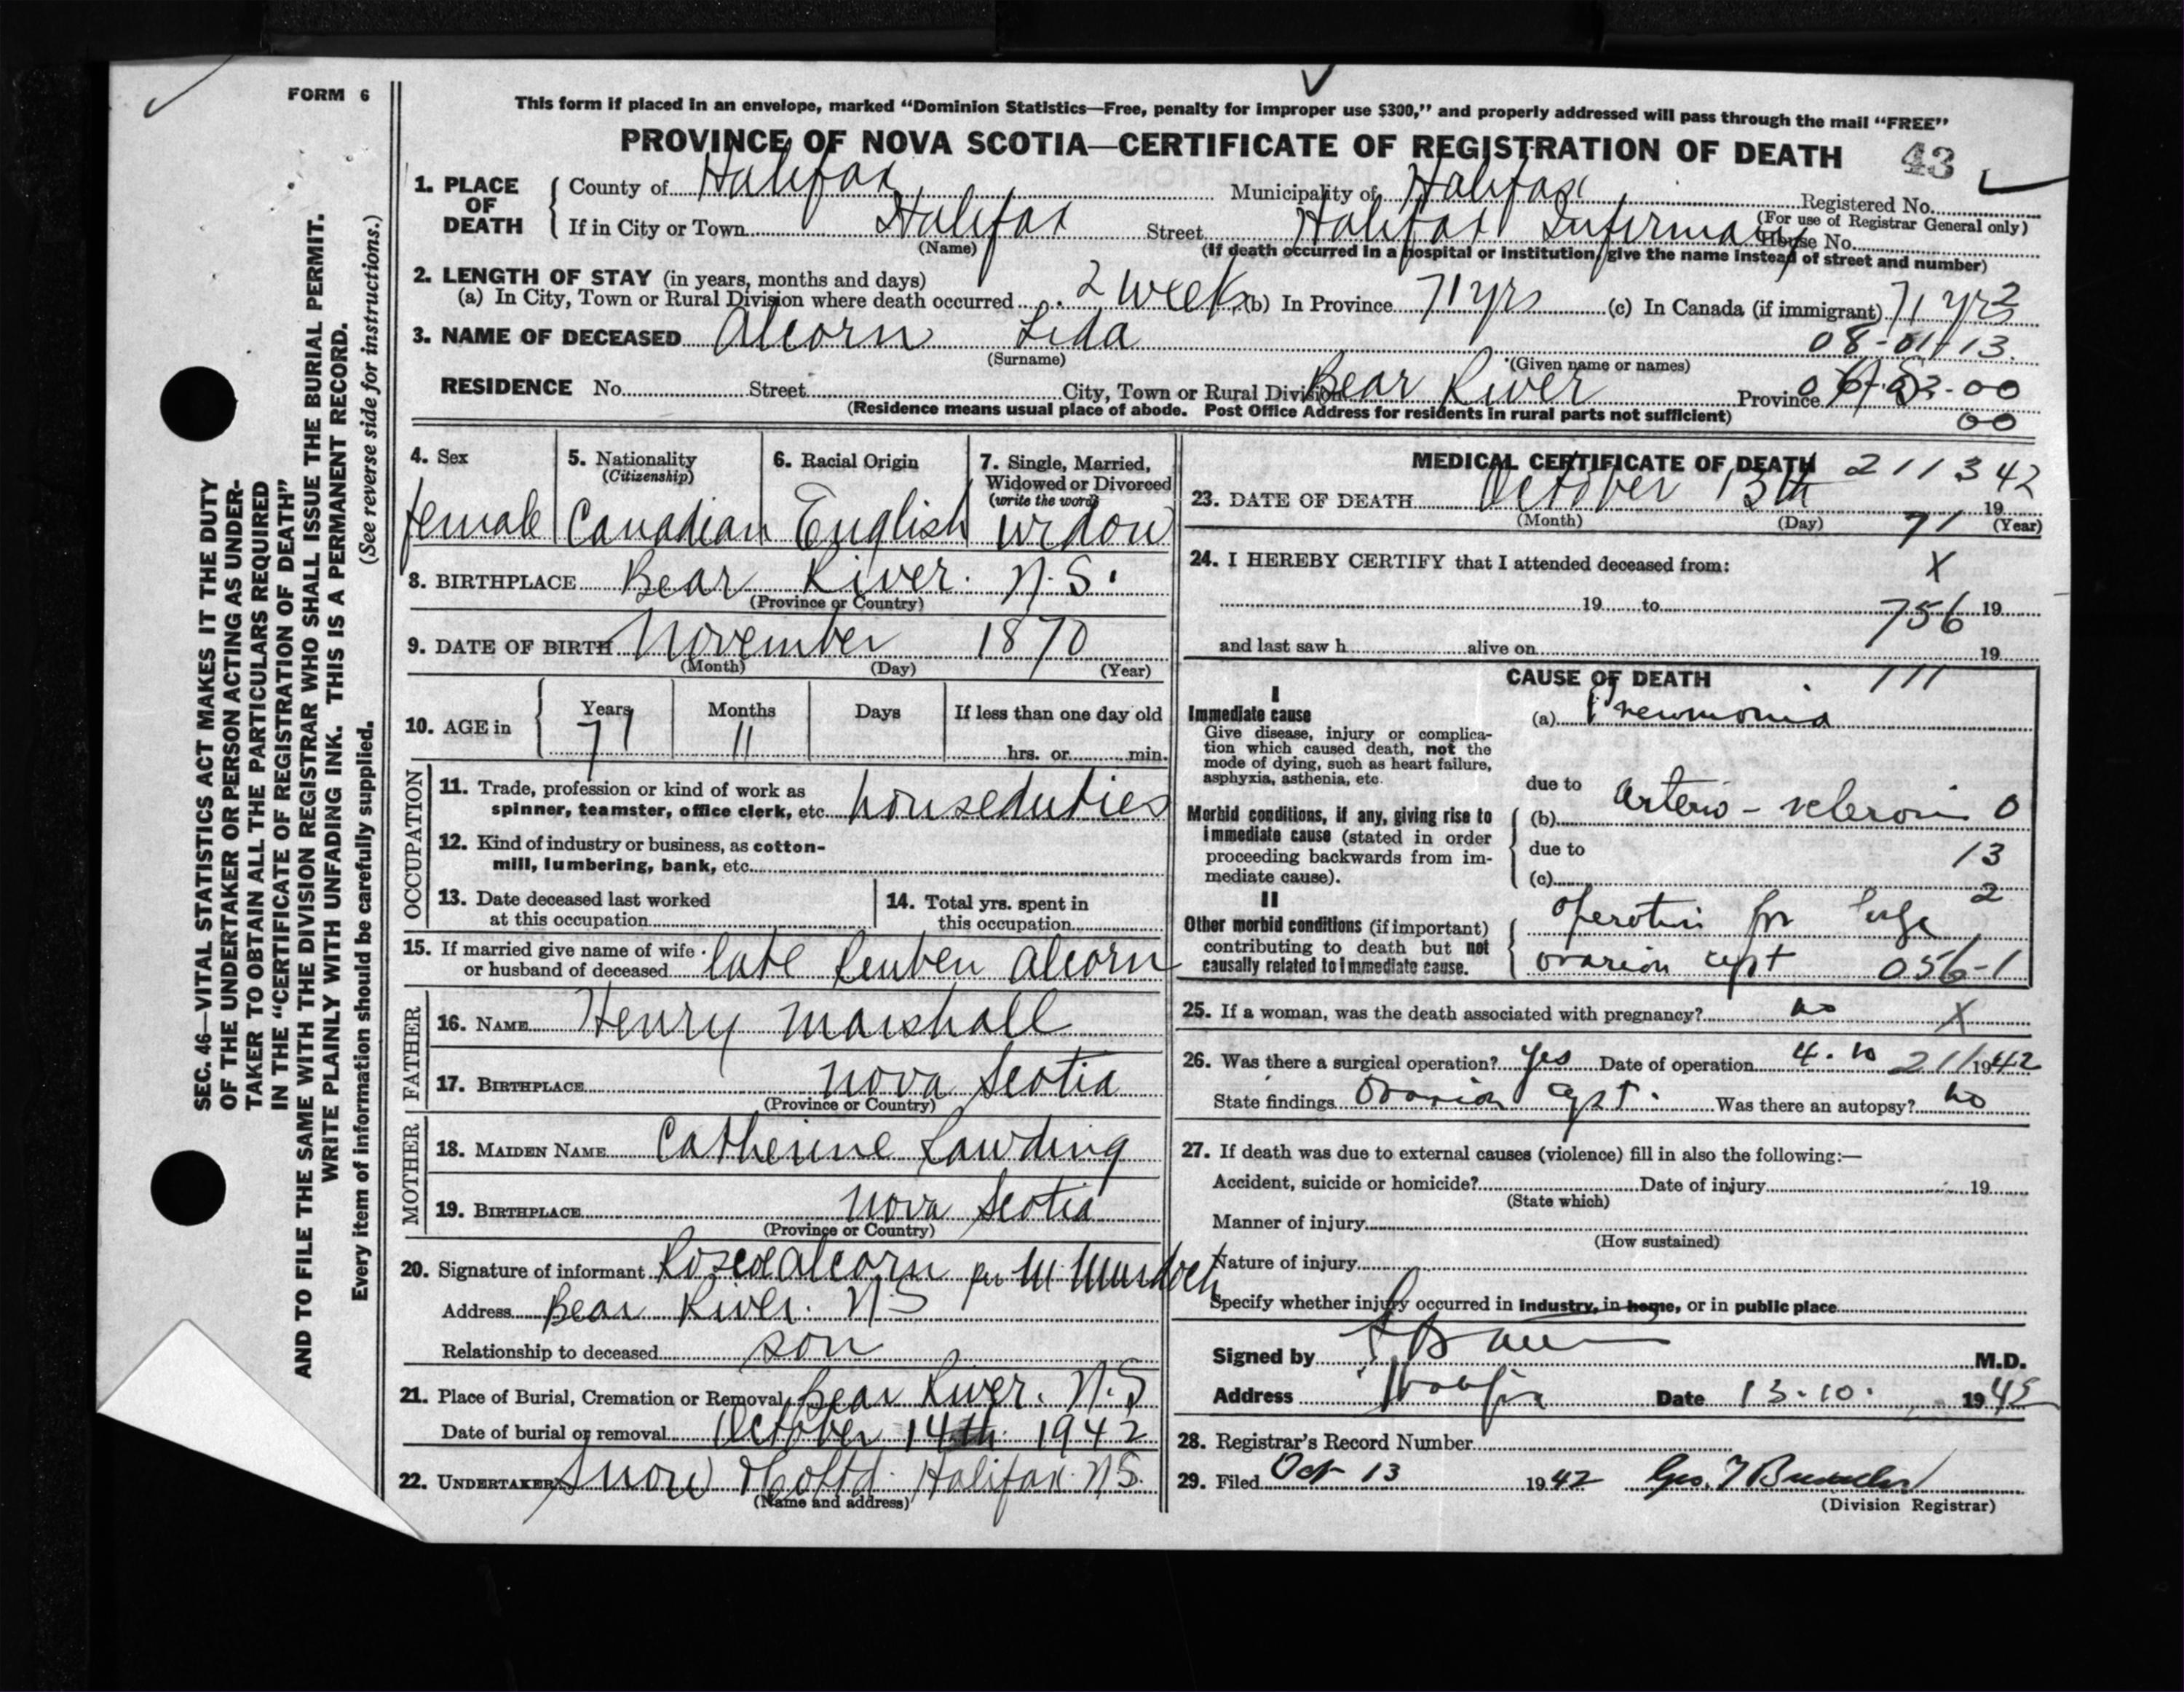 FORM 6
This form if placed in an envelope, marked “Dominion Statistics—Free, penalty for improper use $300,” and properly addressed will pass through the mail “FREE”
PROVINCE OF NOVA SCOTIA—CERTIFICATE OF REGISTRATION OF DEATH 43
1. PLACE OF DEATH
County of Halifax Municipality of Halifax Registered No.
(For use of Registrar General only)
If in City or Town Halifax Street Halifax Infirmary House No.
(Name) (If death occurred in a hospital or institution, give the name instead of street and number)
2. LENGTH OF STAY (in years, months and days)
(a) In City, Town or Rural Division where death occurred 2 weeks (b) In Province 71 yrs (c) In Canada (if immigrant) 71 yrs 2
3. NAME OF DECEASED Alcorn Lida 08-01-13.
(Surname) (Given name or names)
RESIDENCE No. Street City, Town or Rural Division Bear River Province
(Residence means usual place of abode. Post Office Address for residents in rural parts not sufficient) 00
4. Sex 5. Nationality 6. Racial Origin 7. Single, Married,
(Citizenship) Widowed or Divorced
(write the word)
female Canadian English widow
8. BIRTHPLACE Bear River. N.S.
(Province or Country)
9. DATE OF BIRTH November 1870
(Month) (Day) (Year)
10. AGE in Years Months Days If less than one day old
71 11 hrs. or min.
OCCUPATION
11. Trade, profession or kind of work as
spinner, teamster, office clerk, etc. houseduties
12. Kind of industry or business, as cotton-
mill, lumbering, bank, etc.
13. Date deceased last worked
at this occupation
14. Total yrs. spent in
this occupation
15. If married give name of wife
or husband of deceased late Reuben Alcorn
FATHER
16. NAME Henry Marshall
17. BIRTHPLACE Nova Scotia
(Province or Country)
MOTHER
18. MAIDEN NAME Catherine Lawding
19. BIRTHPLACE Nova Scotia
(Province or Country)
20. Signature of informant Roscoe Alcorn per M Murdoch
Address Bear River. N.S
Relationship to deceased son
21. Place of Burial, Cremation or Removal Bear River. N.S
Date of burial or removal October 14th 1942
22. UNDERTAKER Snow & Co Ltd. Halifax. N.S.
(Name and address)
MEDICAL CERTIFICATE OF DEATH 211342
23. DATE OF DEATH October 13th 19
(Month) (Day) 71 (Year)
24. I HEREBY CERTIFY that I attended deceased from: X
19 to 756 19
and last saw h alive on 19
CAUSE OF DEATH 111
I
Immediate cause
Give disease, injury or complica-
tion which caused death, not the
mode of dying, such as heart failure,
asphyxia, asthenia, etc.
(a) Pneumonia
due to
Morbid conditions, if any, giving rise to
immediate cause (stated in order
proceeding backwards from im-
mediate cause).
(b) arterio-sclerosis 0
due to 13
(c) 2
II
Other morbid conditions (if important)
contributing to death but not
causally related to immediate cause.
operation for large
ovarian cyst 056-1
25. If a woman, was the death associated with pregnancy? no X
26. Was there a surgical operation? yes Date of operation 4.10 211 1942
State findings Ovarian cyst. Was there an autopsy? no
27. If death was due to external causes (violence) fill in also the following:—
Accident, suicide or homicide? Date of injury 19
(State which)
Manner of injury
(How sustained)
Nature of injury
Specify whether injury occurred in industry, in home, or in public place
Signed by M.D.
Address Halifax Date 13.10. 1945
28. Registrar's Record Number
29. Filed Oct 13 1942
(Division Registrar)
SEC. 46—VITAL STATISTICS ACT MAKES IT THE DUTY
OF THE UNDERTAKER OR PERSON ACTING AS UNDER-
TAKER TO OBTAIN ALL THE PARTICULARS REQUIRED
IN THE “CERTIFICATE OF REGISTRATION OF DEATH”
AND TO FILE THE SAME WITH THE DIVISION REGISTRAR WHO SHALL ISSUE THE BURIAL PERMIT.
WRITE PLAINLY WITH UNFADING INK. THIS IS A PERMANENT RECORD.
Every item of information should be carefully supplied. (See reverse side for instructions.)